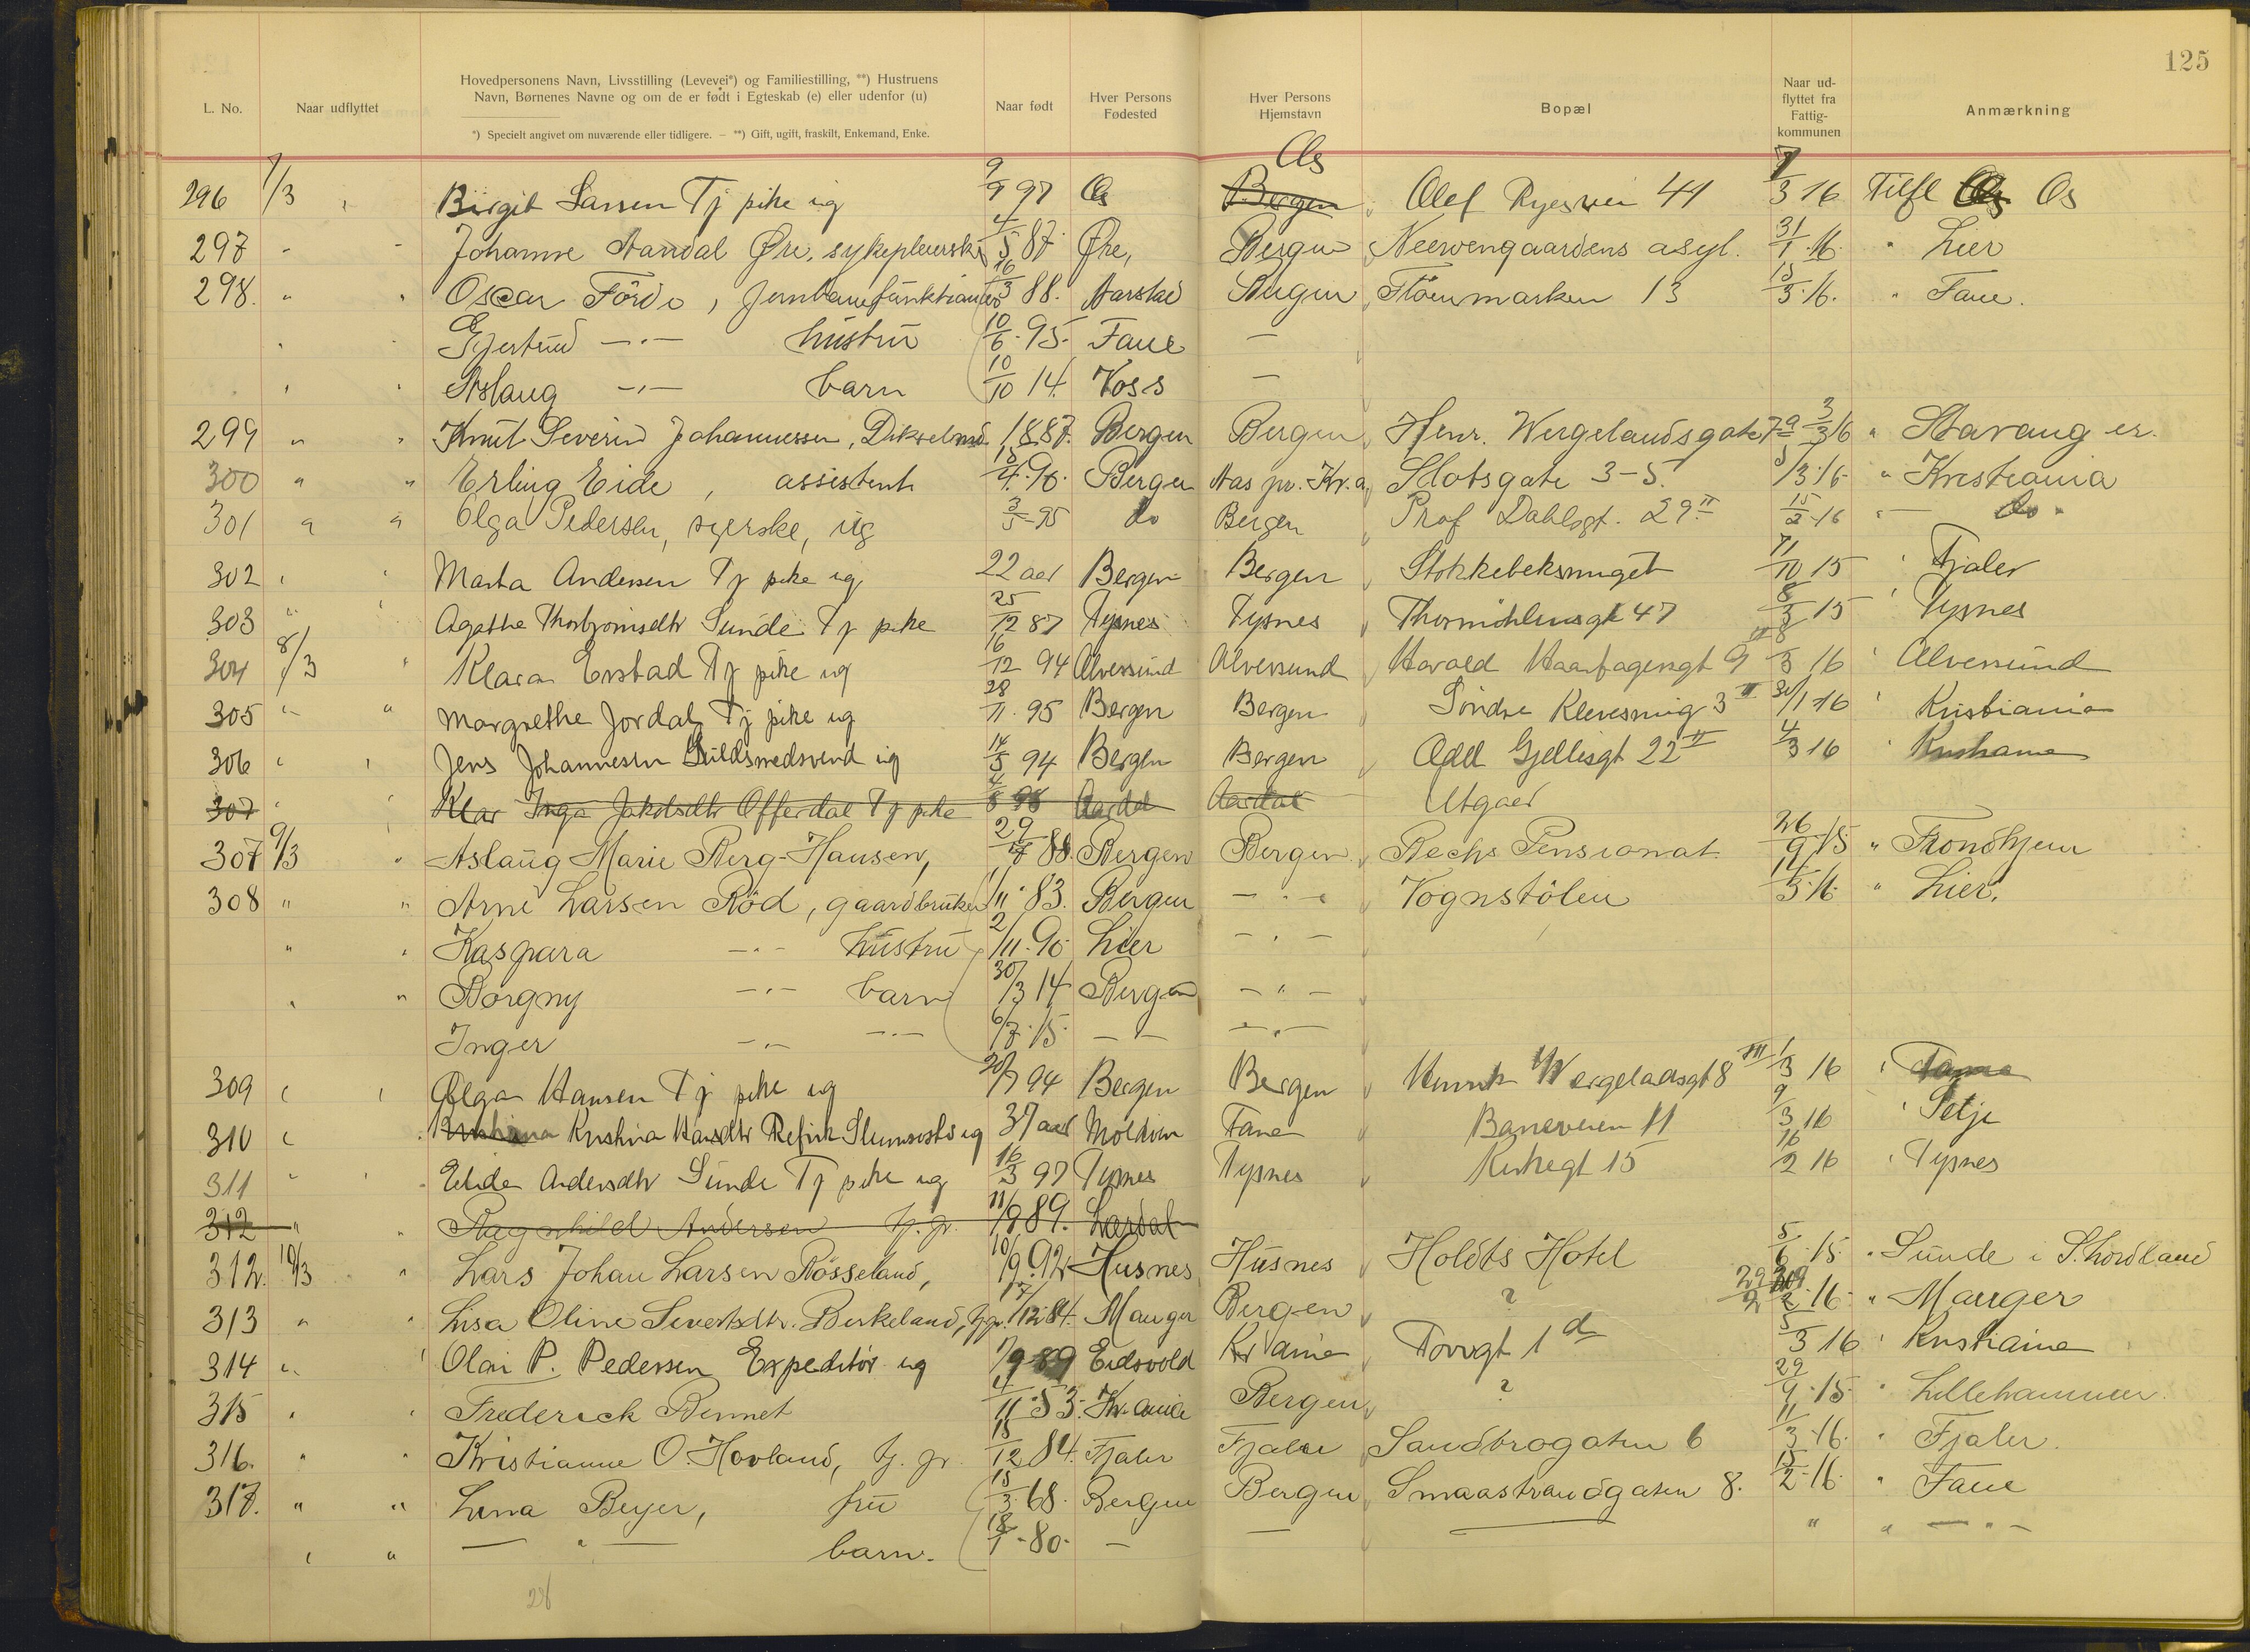 125
L. No. Naar udflyttet Hovedpersonens Navn, Livsstilling (Levevei*) og Familiestilling, **) Hustruens Navn, Børnenes Navne og om de er født i Egteskab (e) eller udenfor (u) Naar født Hver Persons Fødested Hver Persons Hjemstavn Bopæl Naar udflyttet fra Fattigkommunen Anmærkning
*) Specielt angivet om nuværende eller tidligere. — **) Gift, ugift, fraskilt, Enkemand, Enke.
Os
296 7/3 " Birgit Larsen Tj pike ug 9/9 97 Os Bergen Olef Ryesvei 41 7/3 16 Tilfl Os Os
297 " " Johanne Aandal Øre, sykepleierske 4/5 87 Øre, Bergen Neevengaardens asyl. 31/1 16. " Lier
298. " " Oscar Förde, Jernbanefunktionær 16/3 88. Bergen Flöenmarken 13 15/3 16. " Fane.
" " Gjertrud —"— hustru 10/6 95 Fane —
" " Aslaug —"— barn 10/10 14. Voss —
299 " " Knut Severin Johannessen, 1887. Bergen Bergen Henr. Wergelandsgate 7a 3/3 16 " Stavanger.
300 " " Erling Eide, assistent 90. Bergen Aas pr. Kr.a Slotsgate 3-5. 3/3 16 " Kristiania
301 " " Olga Pedersen, syerske, ug 3/5 95 do Bergen Prof Dahlsgt. 29 II 15/2 16 " do "
302 " " Marta Andersen Tj pike ug 22 aar Bergen Bergen Stokkebeksmuget 11/10 15 " Fjaler
303 " " Agathe Thorbjørnsdtr Sunde Tj pike 25/12 87 Tysnes Tysnes Thormöhlensgt 47 8/3 15 " Tysnes
304 8/3 " Klara Evstad Tj pike ug 16/12 94 Alversund Alversund Harald Haarfagersgt 9 II 8/3 16 " Alversund
305 " " Margrethe Jordal Tj pike ug 28/11 95 Bergen Bergen Söndre Klevesmug 3 II 31/1 16 " Kristiania
306 " " Jens Johannesen Guldsmedsvend ug 14/5 94 Bergen Bergen Odd Gjellesgt 22 II 4/3 16 " Kristiania
307 " " Klar Inga Jakobsdtr Offerdal Tj pike 4/8 98 Aardal Aardal Utgaar
307 9/3 " Aslaug Marie Berg-Hansen, 88. Bergen Bergen Bechs Pensionat 26/9 15 " Trondhjem
308 " " Arne Larsen Röd, gaardbruker 1/11 83. Bergen —"— Vognstölen 11/3 16. " Lier.
" " Kaspara —"— hustru 2/11 90 Lier —"—
" " Borgny —"— barn 30/3 14 Bergen —"—
Inger —"— —"— 6/7 15 —"— —"—
309 " " Olga Hansen Tj pike ug 20/7 94 Bergen Bergen Henrik Wergelandsgt 8 III 1/3 16 " Fana
310 " " Kristina Hansdtr Slumsøster ug 37 aar Fane Baneveien 11 9/3 16 " Selje
311 " " Elida Andersdtr Sunde Tj pike ug 16/3 97 Tysnes Tysnes Kirkegt 15 16/2 16 " Tysnes
312 " " Ragnhild Andersen tj. p. 11/9 89. Lærdal
312. 10/3 " Lars Johan Larsen Rösseland, 10/9 92 Husnes Husnes Holdts Hotel 5/6 15. " Sunde i S.hordland
313 " " Lisa Oline Sivertsdtr. Birkeland, tj.p. 17/12 84. Manger Bergen ? 29/2 16. " Manger
314 " " Olai P. Pedersen Expeditör ug 7/9 89 Eidsvold Kr ania Torvgt 1 d 5/3 16 " Kristiania
315 " " Frederick Bennet 4/11 53. Kr.ania Bergen ? 29/9 15. " Lillehammer.
316. " " Kristianne O. Hovland, tj. p. 15/12 84. Fjaler Fjaler Sandbrogaten 6 11/3 16. " Fjaler.
317. " " Lina Beyer, fru 15/3 68. Bergen Bergen Smaastrandgaten 8. 15/2 16. " Fane
" " —"— barn. 18/1 80. — — — " " —"—
28